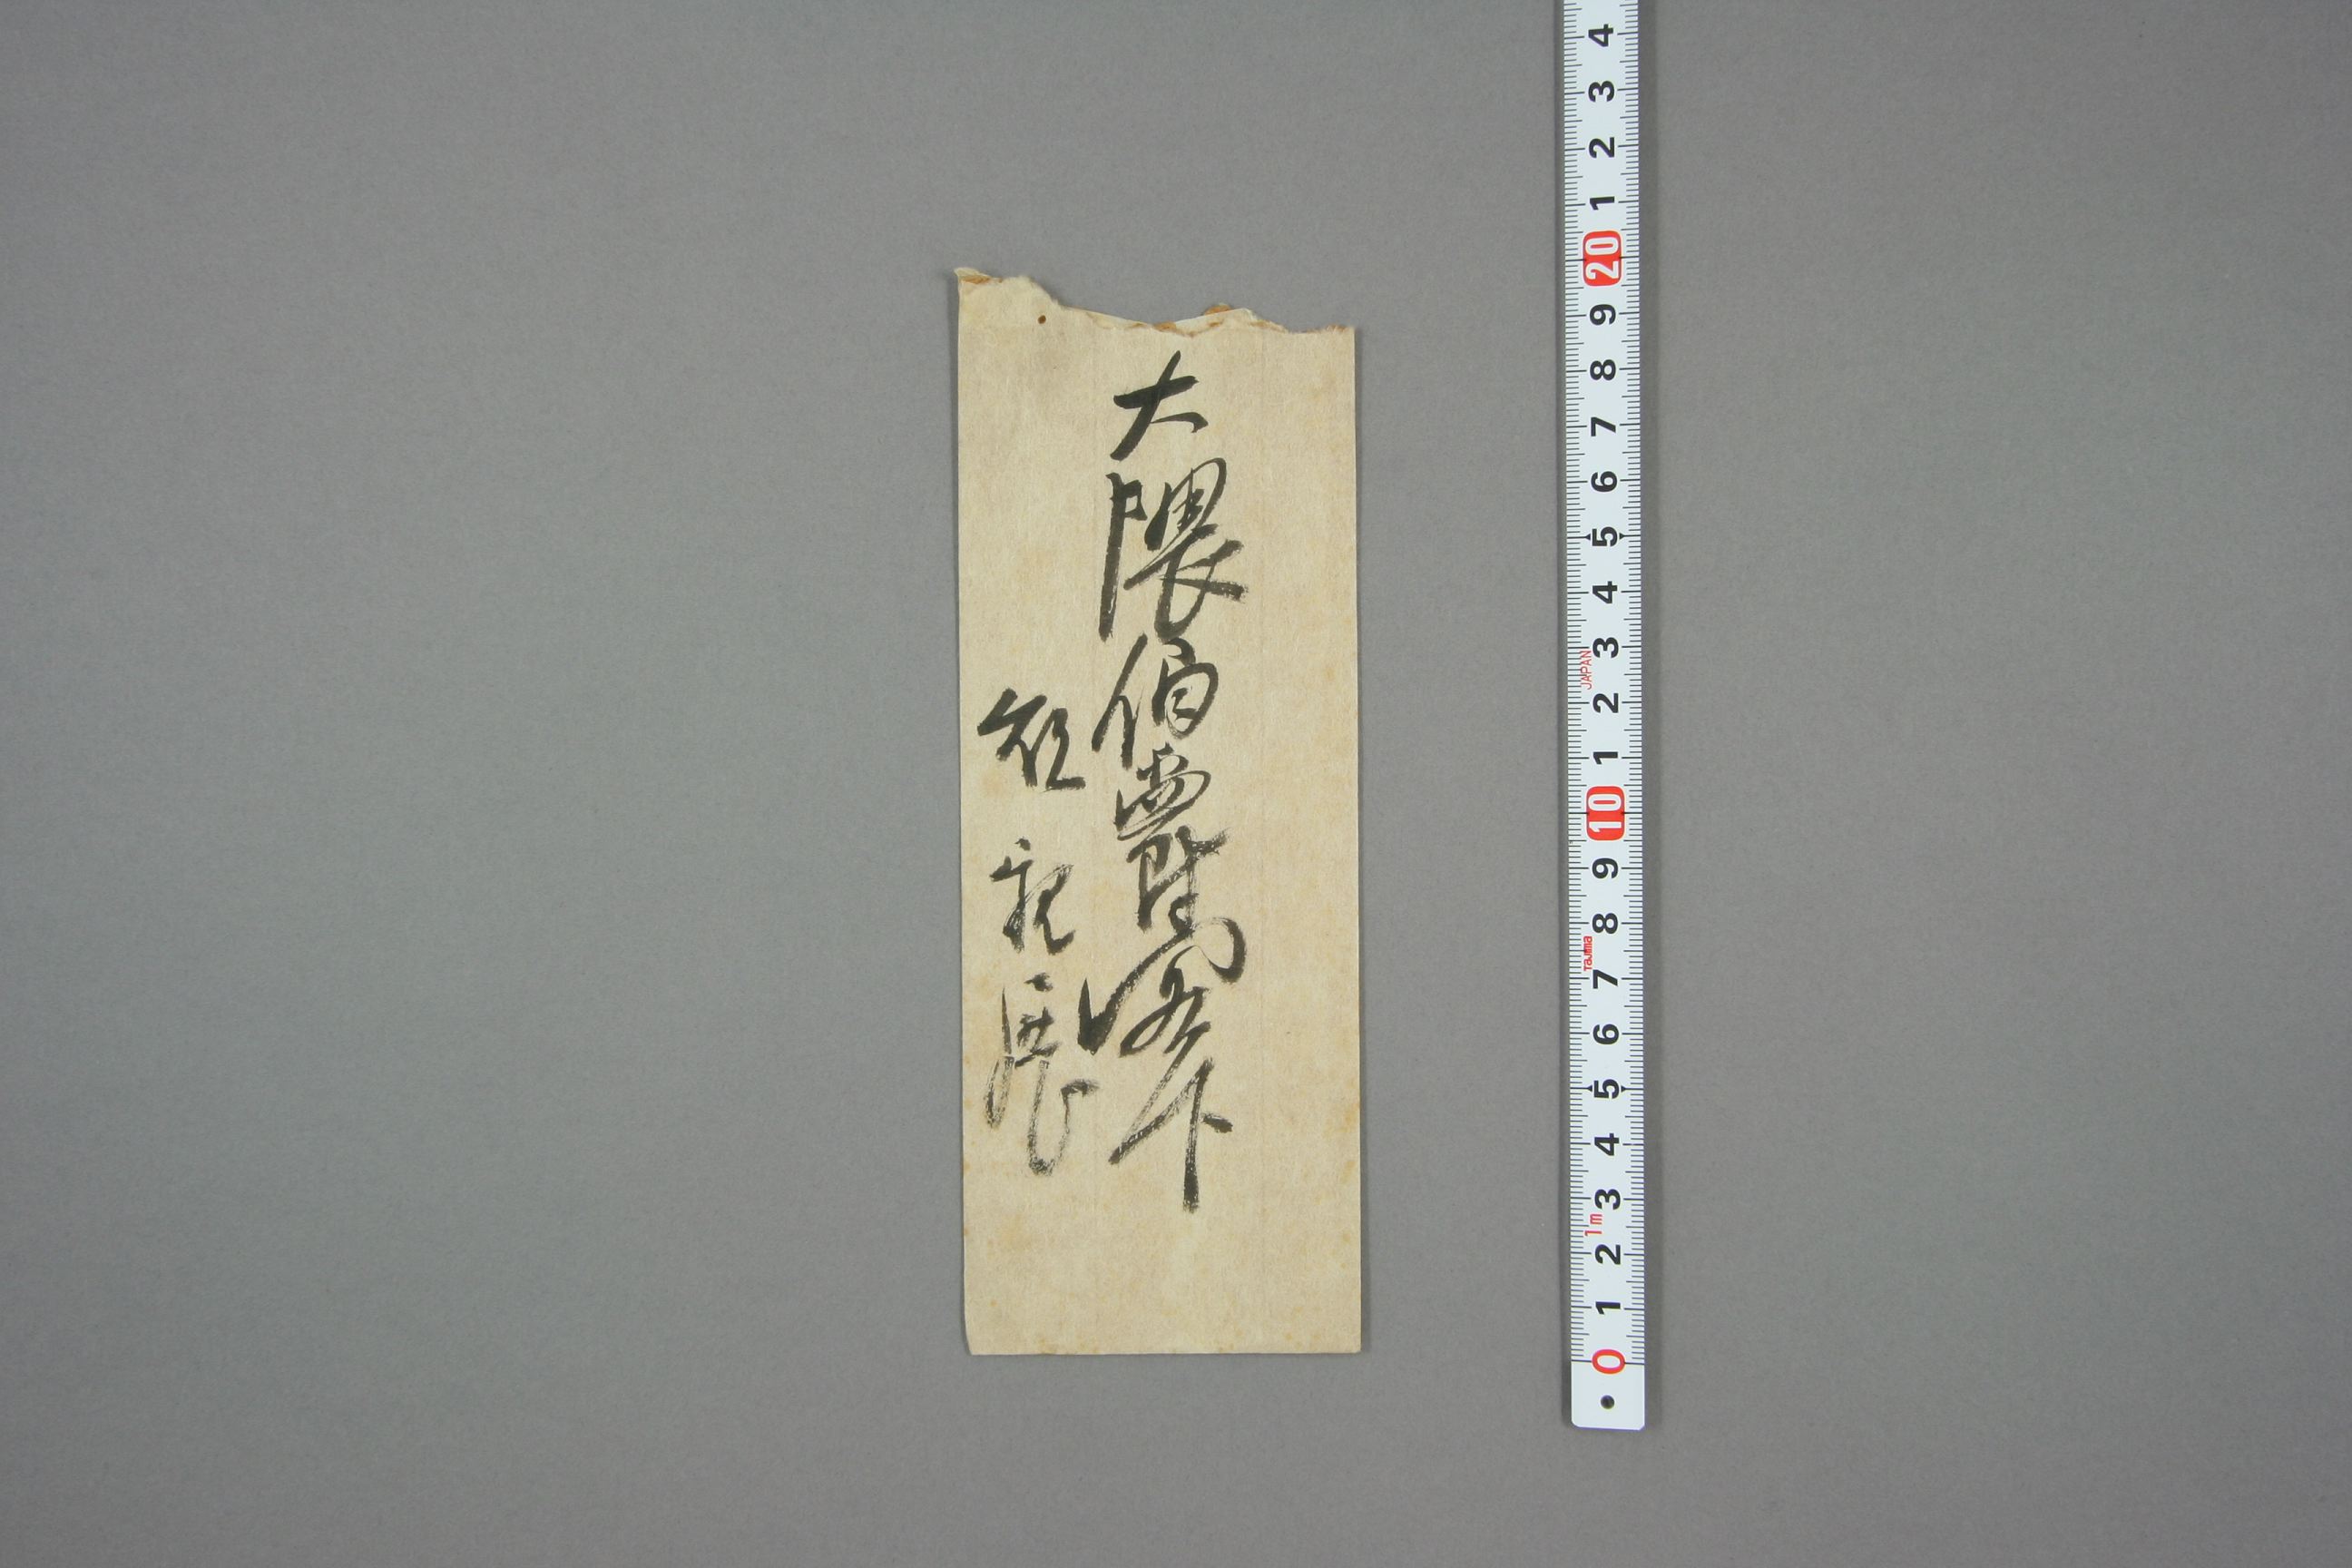 大隈伯爵閣下
親展
4
3
2
1
20
9
8
7
6
5
4
3
JAPAN
2
1
10
9
8
Tajima
7
6
5
4
3
1m
2
1
0